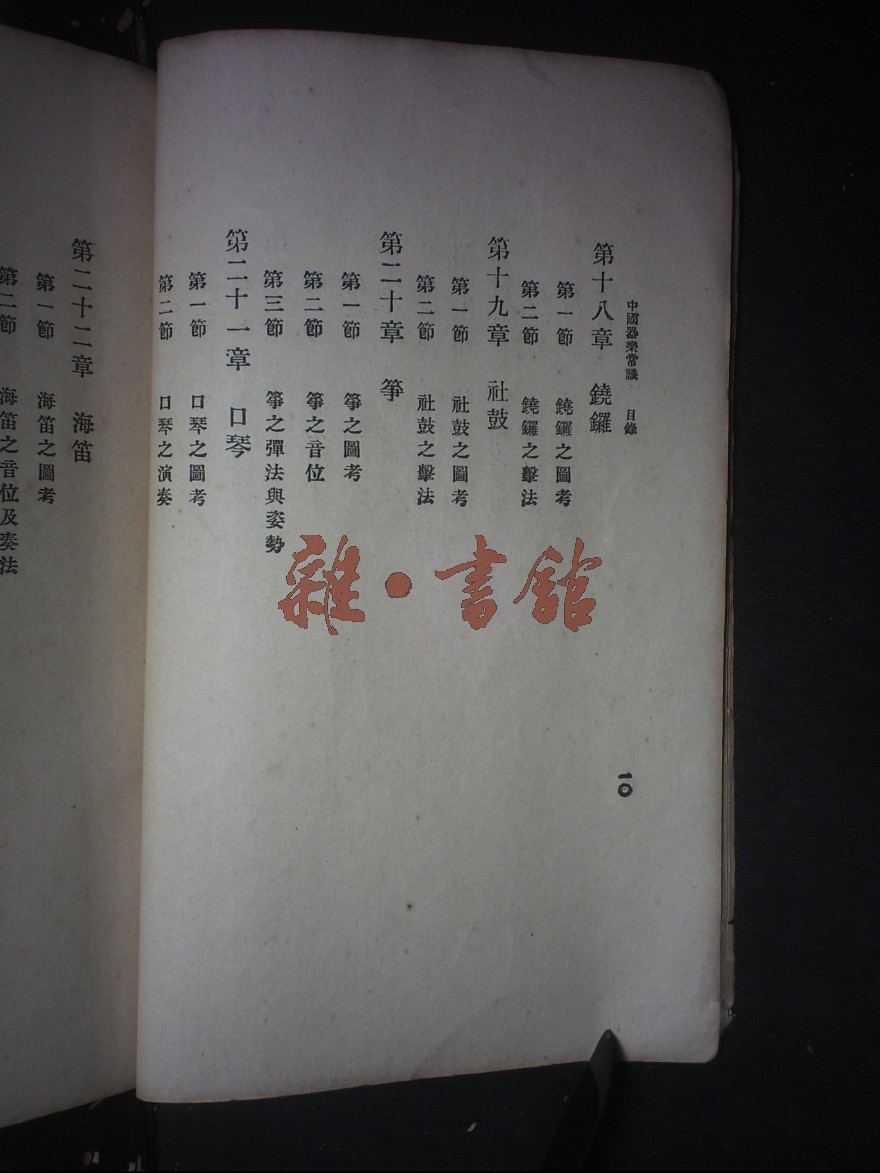 中國器樂常識 目錄
第十八章 鐃鑼
第一節 鐃鑼之圖考
第二節 鐃鑼之擊法
第十九章 社鼓
第一節 社鼓之圖考
第二節 社鼓之擊法
第二十章 箏
第一節 箏之圖考
第二節 箏之音位
第三節 箏之彈法與姿勢
第二十一章 口琴
第一節 口琴之圖考
第二節 口琴之演奏
一〇
第二十二章 海笛
第一節 海笛之圖考
第二節 海笛之音位及奏法
雜·書館